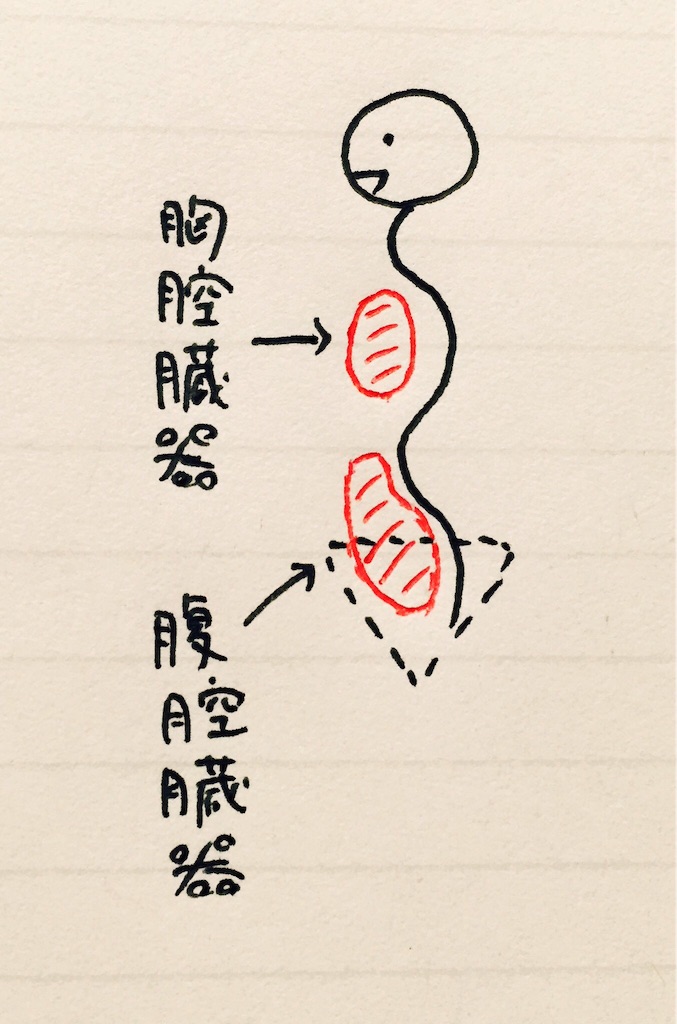 胸腔臓器
腹腔臓器